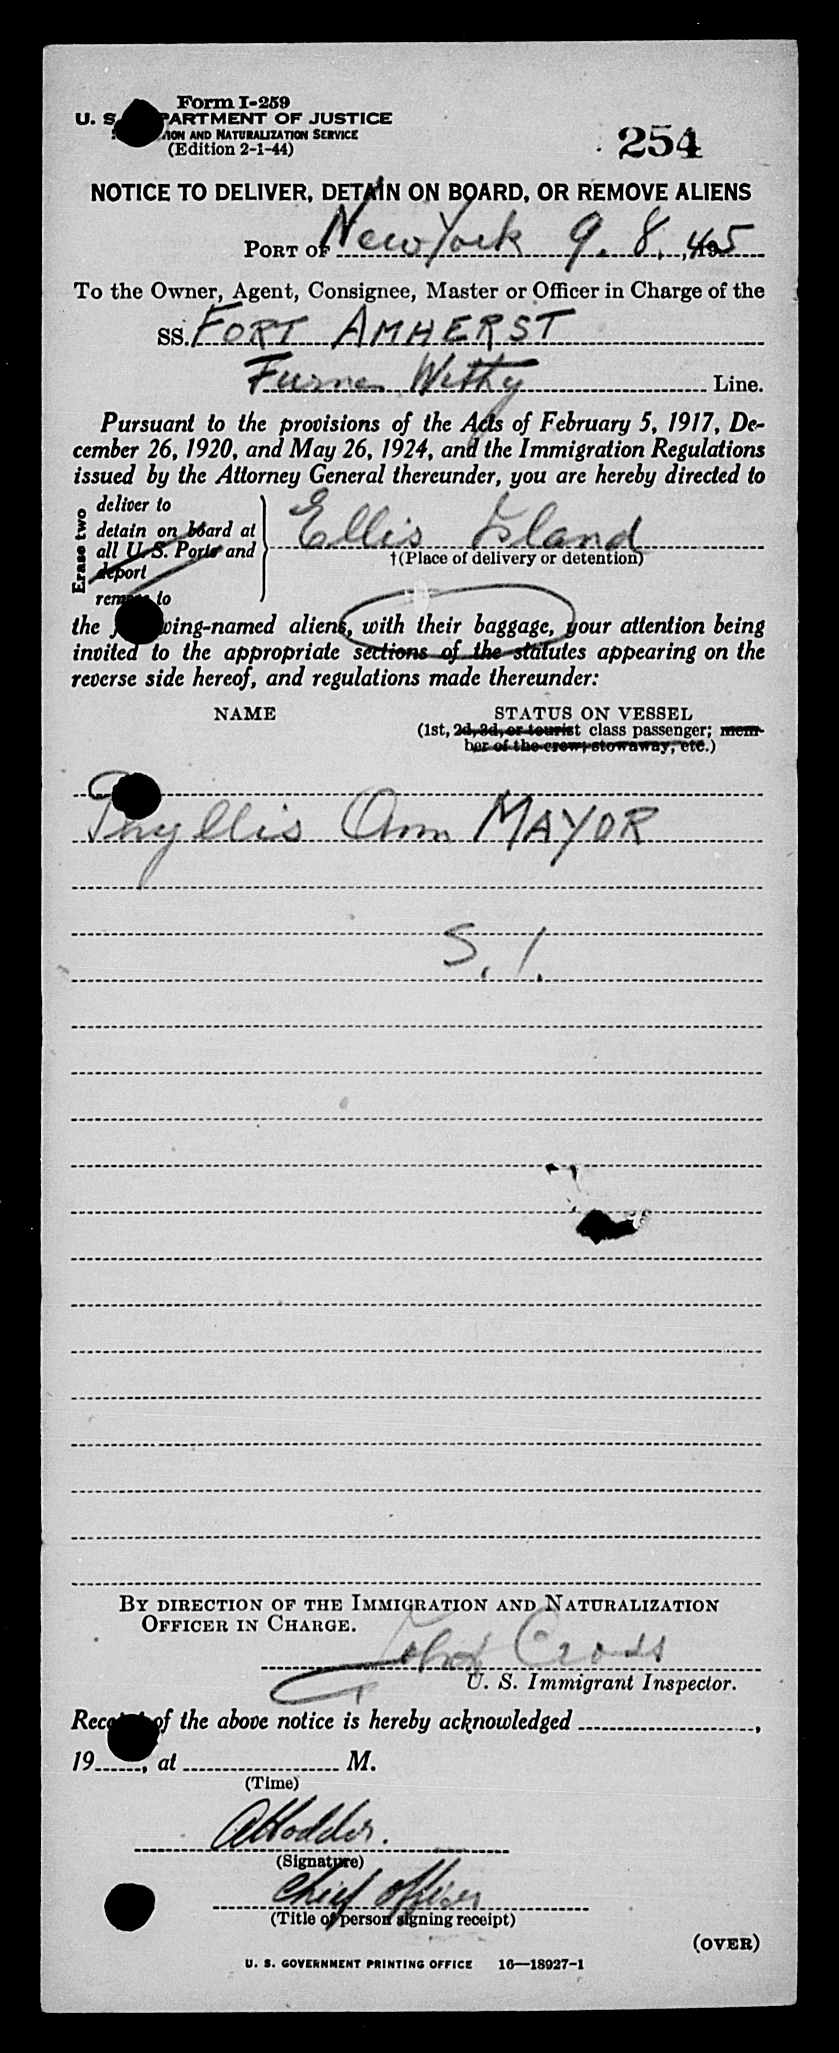 Form I-259
U. S. DEPARTMENT OF JUSTICE
AND NATURALIZATION SERVICE
(Edition 2-1-44)
254
NOTICE TO DELIVER, DETAIN ON BOARD, OR REMOVE ALIENS
PORT OF New York 9. 8., 1945
To the Owner, Agent, Consignee, Master or Officer in Charge of the
SS. FORT AMHERST
Furness Withy Line.
Pursuant to the provisions of the Acts of February 5, 1917, De-
cember 26, 1920, and May 26, 1924, and the Immigration Regulations
issued by the Attorney General thereunder, you are hereby directed to
Erase two
deliver to
detain on board at
all U. S. Ports and
deport
remove to
Ellis Island
†(Place of delivery or detention)
the following-named aliens, with their baggage, your attention being
invited to the appropriate sections of the statutes appearing on the
reverse side hereof, and regulations made thereunder:
NAME STATUS ON VESSEL
(1st, 2d, 3d, or tourist class passenger; mem-
ber of the crew, stowaway, etc.)
Phyllis Ann MAYOR
S. I.
BY DIRECTION OF THE IMMIGRATION AND NATURALIZATION
OFFICER IN CHARGE.
Cross
U. S. Immigrant Inspector.
Receipt of the above notice is hereby acknowledged ,
19 , at M.
(Time)
A Hodder.
(Signature)
Chief Officer
(Title of person signing receipt)
(OVER)
U. S. GOVERNMENT PRINTING OFFICE 16—18927-1